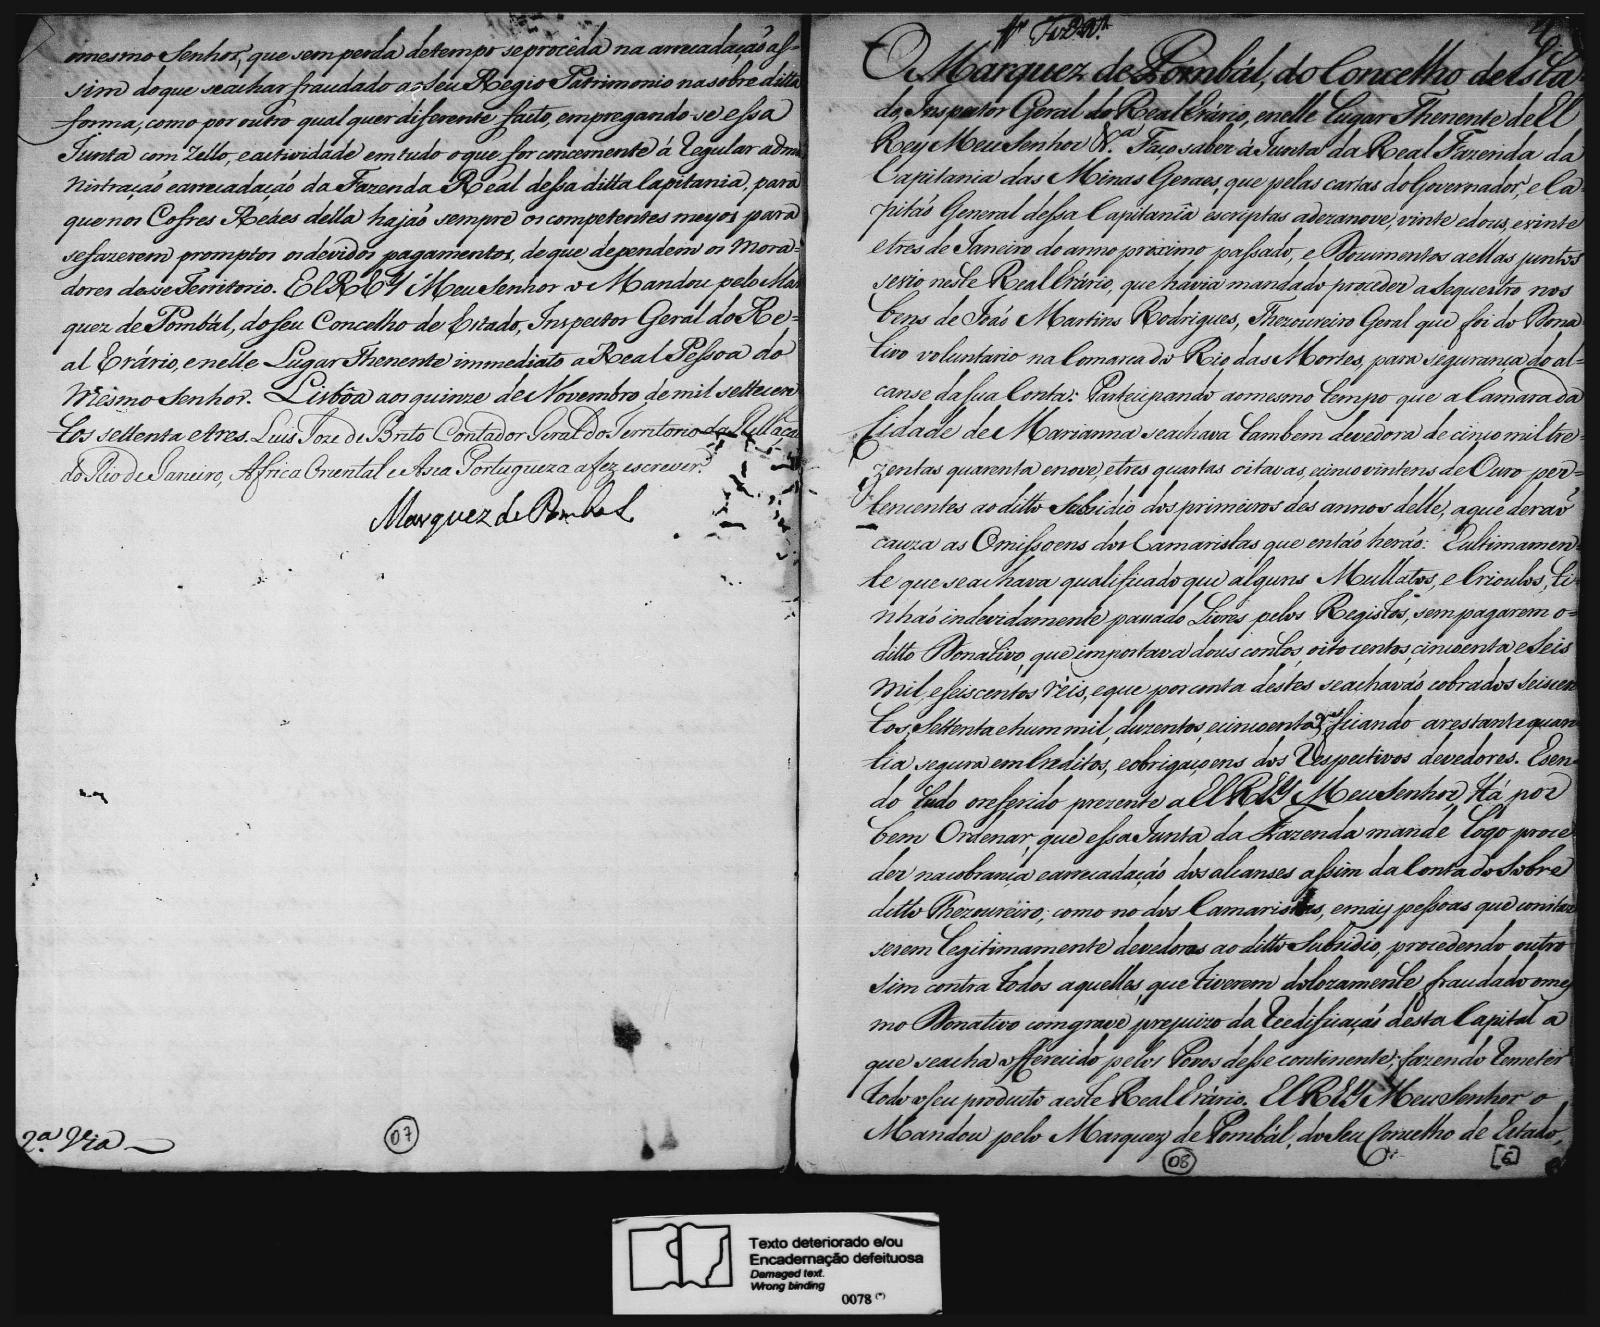 omesmo Senhor, que sem perda detempo seproceda na arrecadaçaõ as=
sim doque seachar fraudado ao Seu Regio Patrimonio nasobre ditta
forma, como por outro qual quer diferente facto, empregando-se essa
Junta com Zello, eactividade em tudo oque for concernente á Regular admi
nistraçaõ earrecadaçaõ da Fazenda Real dessa ditta Capitania, para
que nos Cofres Reáes della hajaõ sempre os competentes meyos para
sefazerem promptos osdevidos pagamentos, de que dependem os Mora=
dores desse Territorio. El REY Meu Senhor o Mandou pelo Mar
quez de Pombál, do seu Concelho de Estado, Inspector Geral do Re=
al Erário, enelle Lugar Thenente immediato a Real Pessoa do
Mesmo Senhor. Lisbôa aos quinze de Novembro de mil settecen
tos settenta etres. Luis Joze de Brito Contador Geral do Territorio da Rellaçaõ
do Rio de Janeiro, Africa Oriental e Asia Portugueza afez escrever.
Marquez de Pombal
2.ª Via
07
O Marquez de Pombál, do Concelho de Esta
do, Inspector Geral do Real Erário, enelle Lugar Thenente del El
Rey Meu Senhor &.ª Faço saber á Junta da Real Fazenda da
Capitania das Minas Geraes, que pelas cartas do Governador, e Ca
pitaõ General dessa Capitanîa escriptas adezanove, vinte edous, evinte
etres de Janeiro do anno próximo passado, e Documentos aellas juntos
sevio neste Real Erário, que havia mandado proceder a sequestro nos
bens de Joaõ Martins Rodrigues, Thezoureiro Geral que foi do Dona
tivo voluntario na Comarca do Rio das Mortes, para segurança do al=
canse da sua Conta: Partecipando aomesmo tempo que a Camara da
Cidade de Marianna seachava tambem devedora de cinco mil tre=
zentas quarenta enove, etres quartas oitavas, ecinco vintens de Ouro per=
tencentes ao ditto Subsidio dos primeiros des annos delle, a que deraõ
cauza as Omissoens dos Camaristas que entaõ heraõ: Eultimamen=
te que seachava qualificado que alguns Mullatos, e Crioulos, ti
nhaõ indevidamente passado Livres pelos Registos, sem pagarem o=
ditto Donativo, que importava dous contos, oito centos, cincoenta e Seis
mil, eSeiscentos réis, eque por conta destes seachavaõ cobrados Seiscen
tos, Settenta ehum mil, duzentos, ecincoenta rs ficando arestante quan
tia segura em Creditos, eobrigaçoens dos Respectivos devedores. Esen=
do tudo oreferido prezente a El REY Meu Senhor, Há por
bem Ordenar, que essa Junta da Fazenda mande logo proce
der nacobrança earrecadaçaõ dos alcanses assim da Conta do Sobre
ditto Thezoureiro, como no dos Camaristas, emais pessoas que constar
serem legitimamente devedoras ao ditto Subsidio, procedendo outro
sim contra todos aquelles, que tiverem dolozamente fraudado omes
mo Donativo com grave prejuizo da Reedificaçaõ désta Capital a
que seacha offerecido pelos Povos desse continente; fazendo Remeter
todo oseu producto aeste Real Erário. El REY Meu Senhor o
Mandou pelo Marquez de Pombál, do Seu Concelho de Estado,
08
[6]
Texto deteriorado e/ou
Encadernação defeituosa
Damaged text.
Wrong binding
0078 (*)